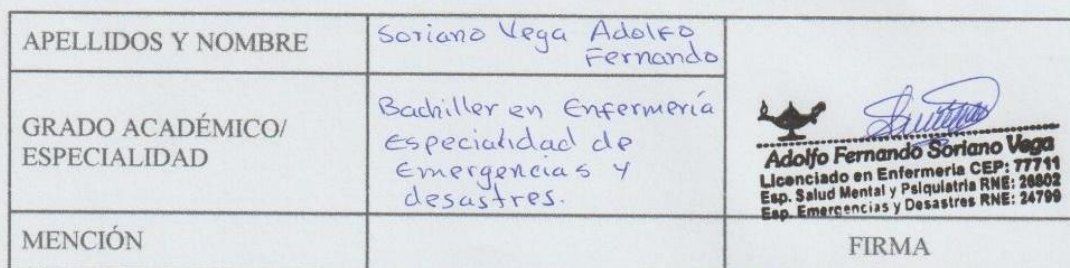 APELLIDOS Y NOMBRE
Soriano Vega Adolfo
Fernando
GRADO ACADÉMICO/
ESPECIALIDAD
Bachiller en Enfermería
Especialidad de
Emergencias y
desastres.
Adolfo Fernando Soriano Vega
Licenciado en Enfermeria CEP: 77711
Esp. Salud Mental y Psiquiatria RNE: 26802
Esp. Emergencias y Desastres RNE: 24799
MENCIÓN
FIRMA